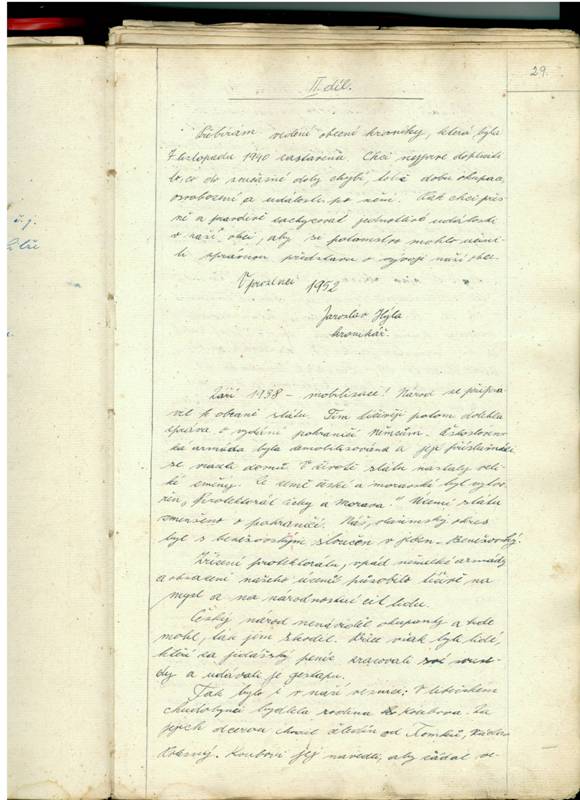 29.
II. díl.
Přebírám vedení obecní kroniky, která byla
7 listopadu 1940 zastavena. Chci nejprve doplniti
to, co do současné doby chybí, totiž dobu okupace,
osvobození a události po něm. Pak chci přes
ně a pravdivě zachycovat jednotlivé události
v naší obci, aby si potomstvo mohlo učini
ti správnou představu o vývoji naší obce.
V prosinci 1952
Jaroslav Hýla
kronikář.
Září 1938 – mobilisace! Národ se připra
vil k obraně státu. Tím tíživěji potom dolehla
zpráva o vydání pohraničí Němcům. Českosloven
ská armáda byla demobilisována a její příslušníci
se vraceli domů. V životě státu nastaly veli
ké změny. Ze země české a moravské byl vytvo
řen „Protektorát Čechy a Morava." Území státu
zmenšeno o pohraničí. Náš, okres
byl s benešovským sloučen v jeden – Benešovský.
Zřízení protektorátu, vpád německé armády
a obsazení našeho území působilo tíživě na
mysl a na národnostní cit lidu.
Český národ nenáviděl okupanty a kde
mohl, tak jim škodil. Byli však byli lidé,
kteří za jidášský peníz zrazovali své souse
dy a udávali je gestapu.
Tak bylo i v naší vesnici: V
chudobynci bydlela rodina Koubova. Za
jejich dcerou chodil čeledín od Tomků,
. Koubovi jej navedli, aby žádal ve-
č. j.